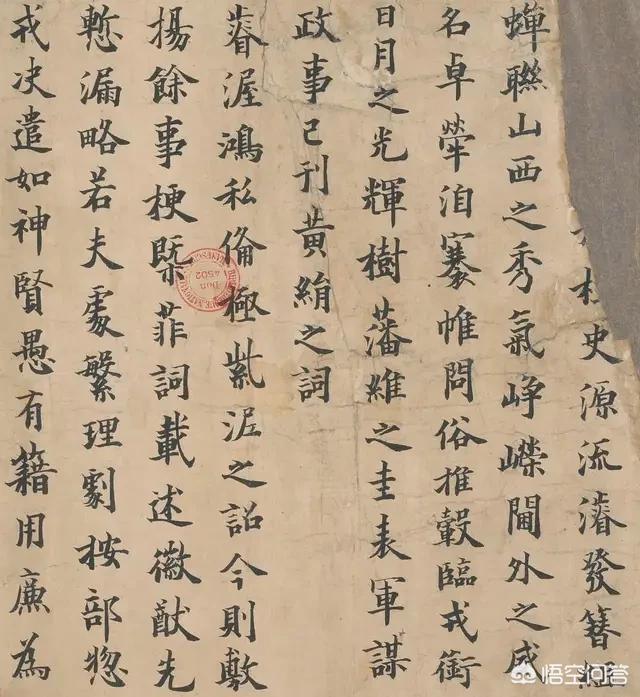 柱史源流濬發簪
蟬聯山西之秀氣崢嶸閫外之威
名卓犖洎褰帷問俗推轂臨戎銜
日月之光輝樹藩維之圭表軍謀
政事已刊黃絹之詞
睿渥鴻私俻極紫泥之詔今則敷
揚餘事梗槩菲詞載述徽猷先
慙漏略若夫處繁理劇按部惣
戎决遣如神賢愚有籍用廉為
Don
4502
悟空问答